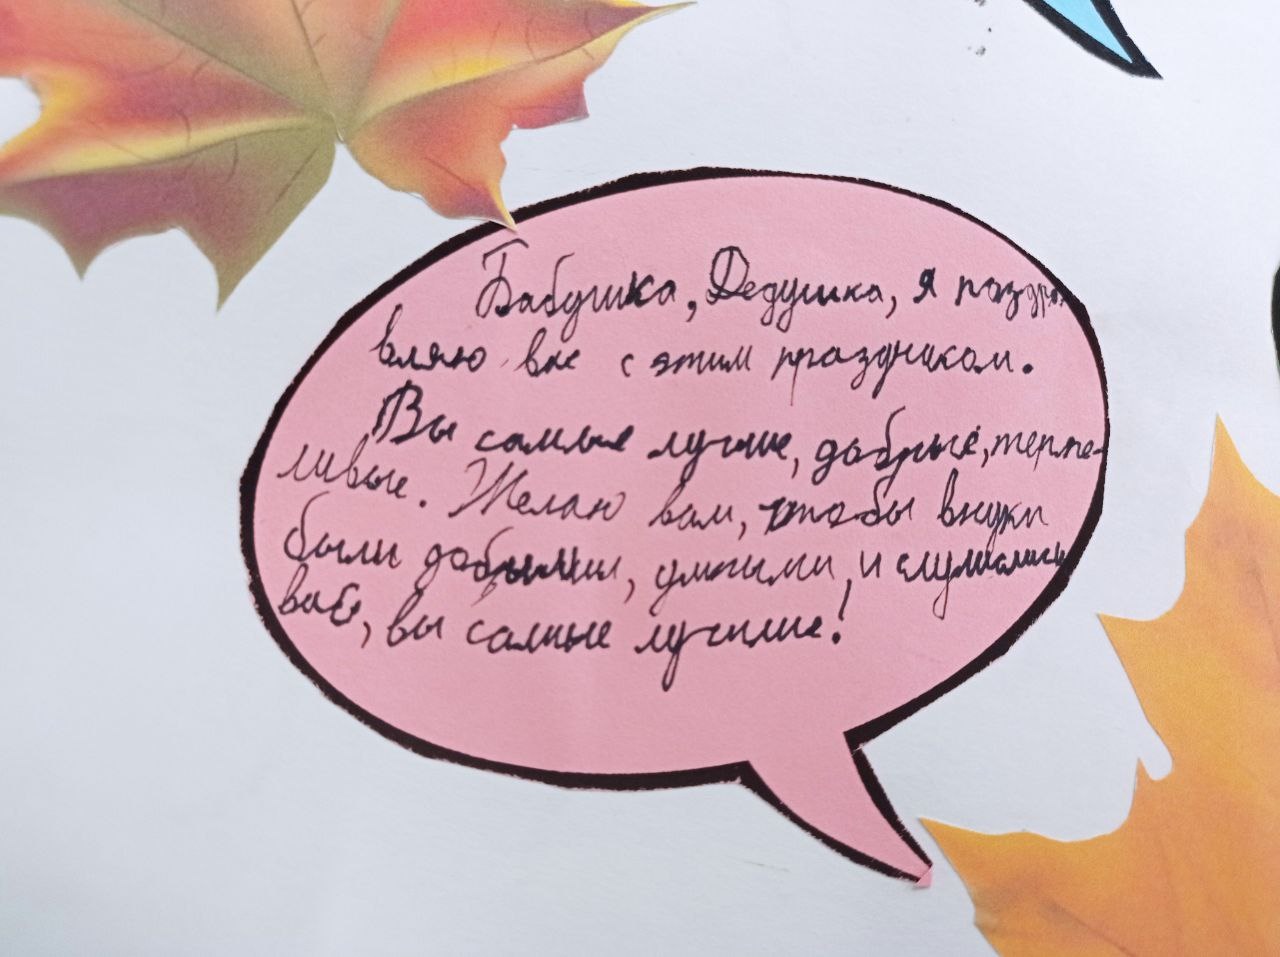 Бабушка, Дедушка, я поздра
вляю вас с этим праздником.
Вы самые лучшие, добрые, терпе-
ливые. Желаю вам, чтобы внуки
были добрыми, умными, и слушались
вас, вы самые лучшие!